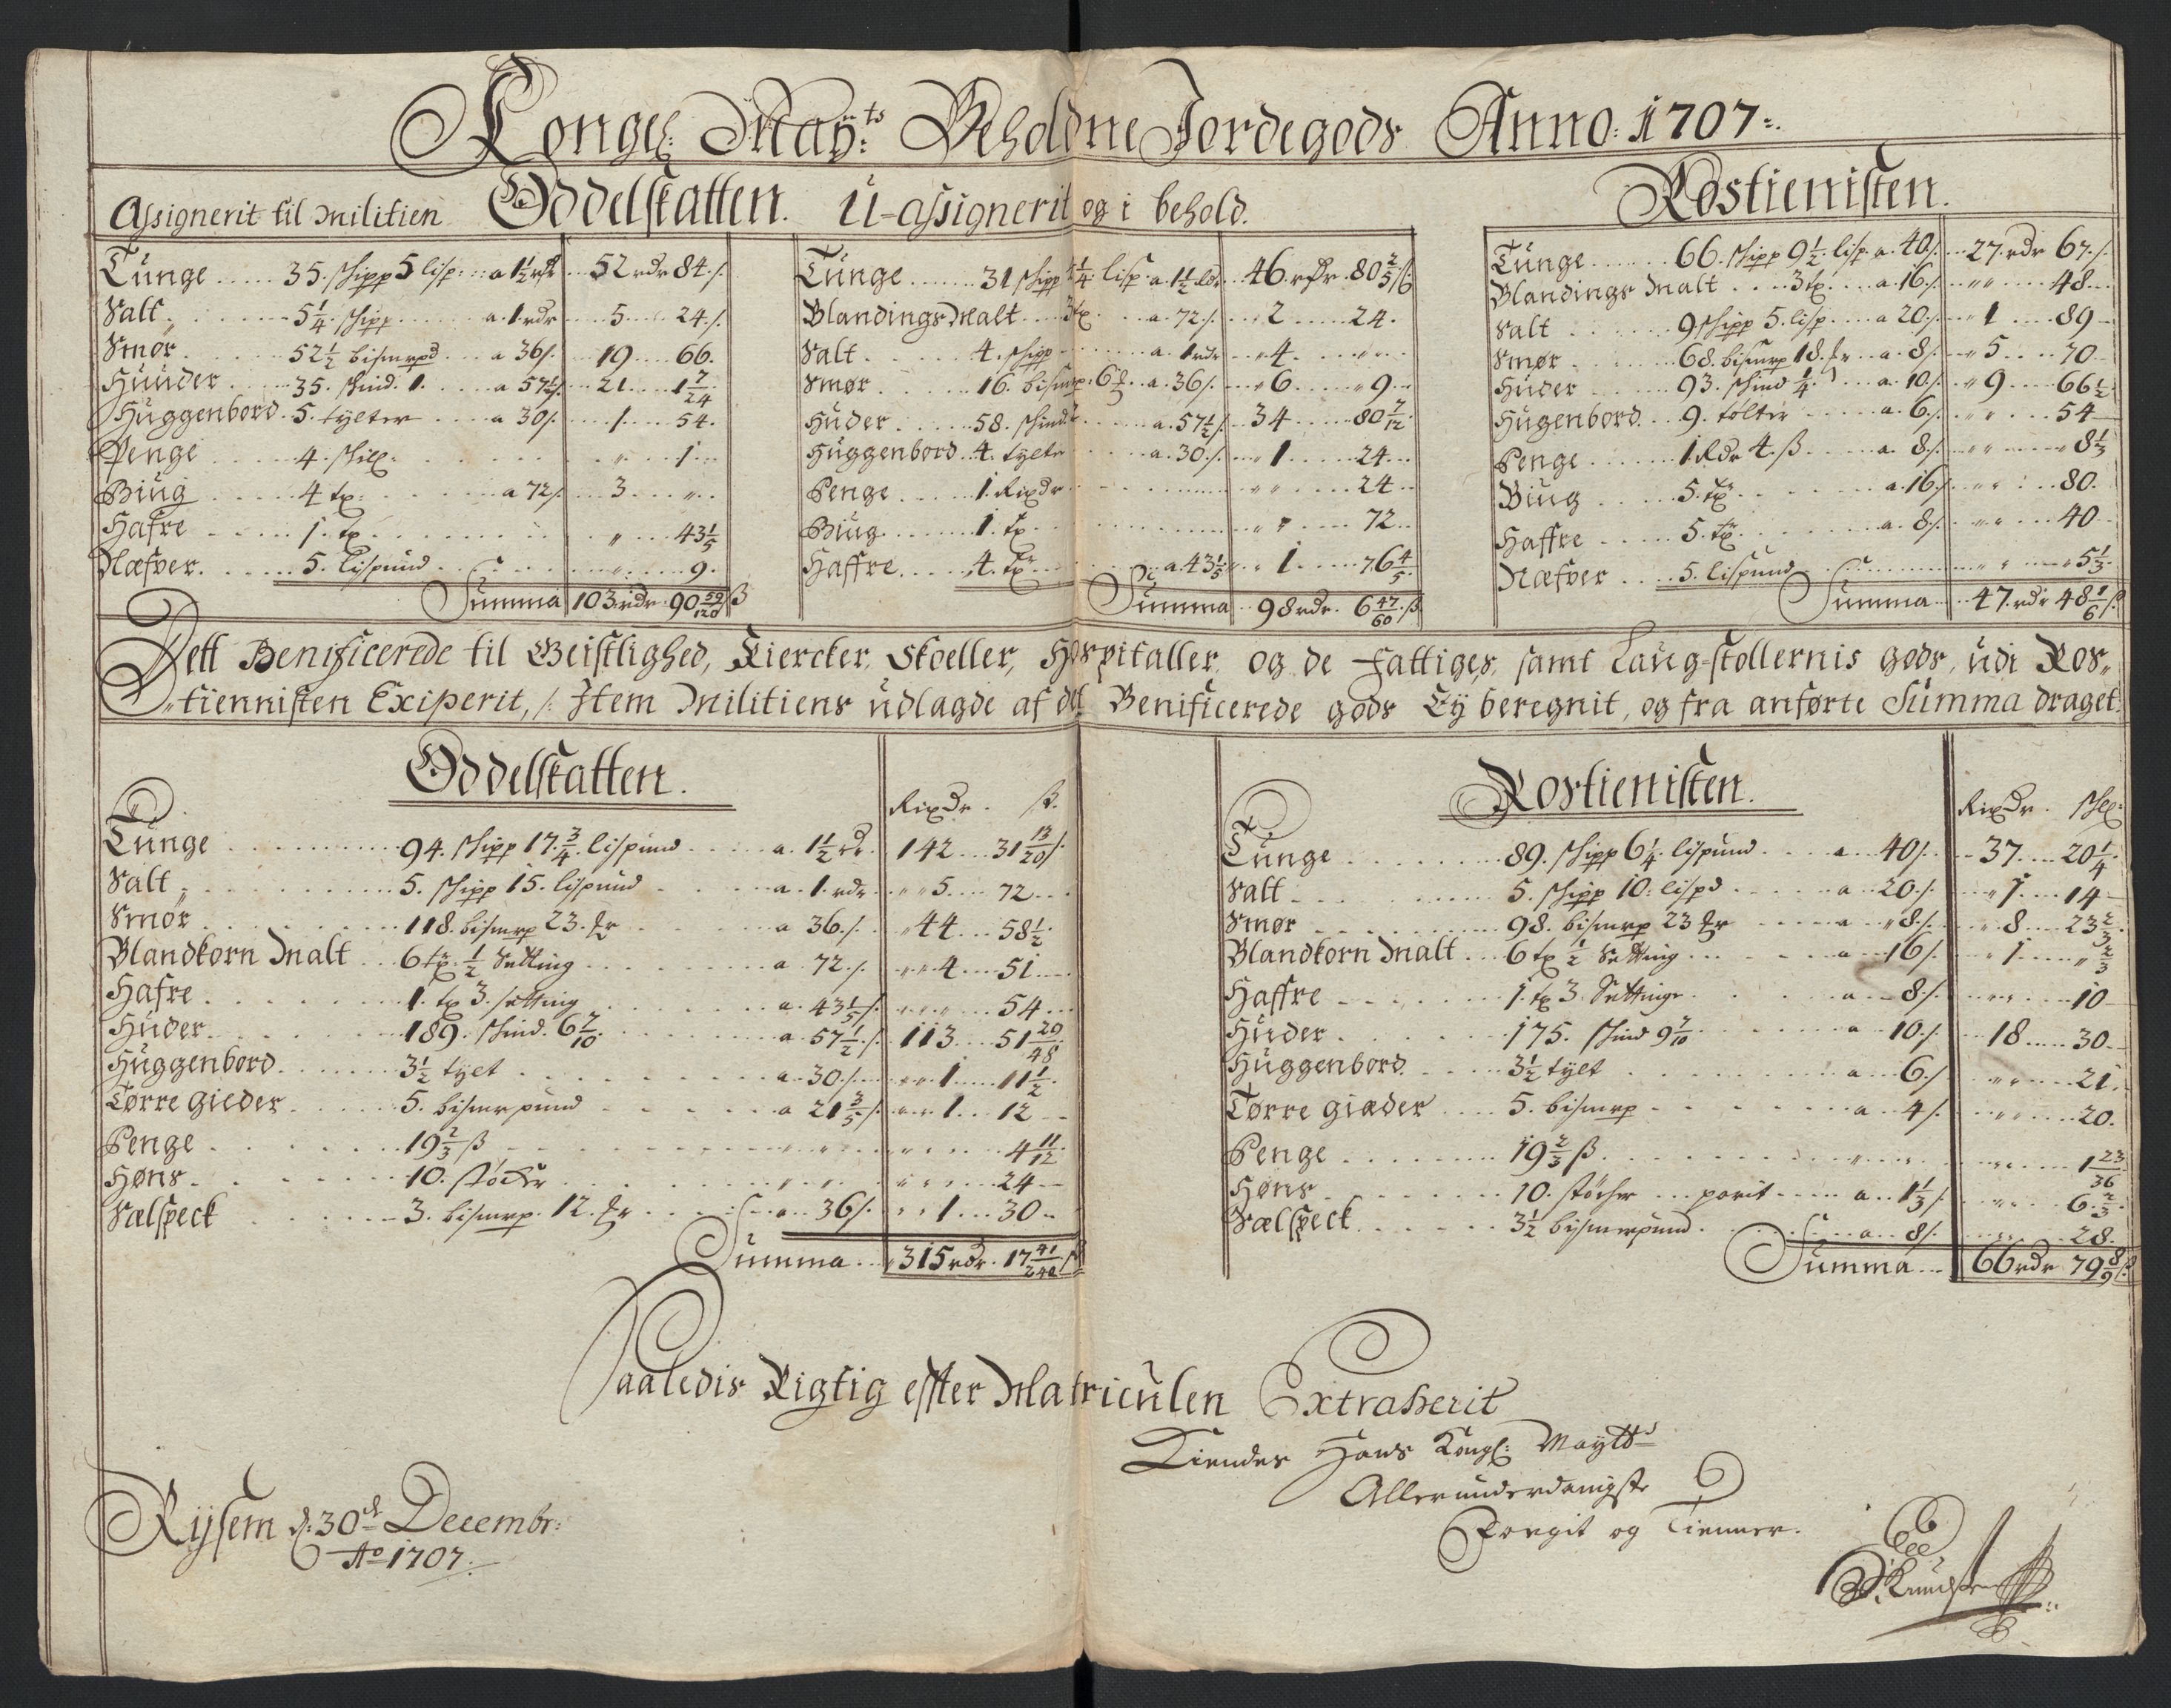 Kongel: May:ts Beholdne Jordegods Anno: 1707:.
Assignerit til Militien Oddelskatten. U-assignerit og i behold. Rostienisten.
Tunge 35. Skipp 5 lisp: a 1½ rdr 52 rdr 84 s.
Salt 5¼. Skipp a. 1 rdr 5 24 s.
Smør 52½ bismrpd a 36 s. 19 66.
Huuder 35. Skind. 1. a 57½ s. 21 1 7/24
Huggenbord. 5. tylter a 30 s. 1 54.
Penge 4. Skill: " 1
Biug 4 tr: a 72 s. 3 "
Hafre 1. tr " 43 1/5
Næfver. 5. Lispund " 9.
Summa 103 rdr. 90 59/120 ß
Tunge 31 Skipp ¼ lisp a. 1½ rdr 46. rdr. 80 2/5 ß
Blandings Malt 3 tr. a. 72 s. 2 24.
Salt 4. Skipp a. 1 rdr 4. "
Smør 16. bismrp: 6 a. 36 s. 6 9
Huder 58. Skind a. 57½ s. 34 80 7/12.
Huggenbord 4. tylter a. 30 s. 1 24
Penge 1. Rixdr " 24
Biug 1. tr " 72
Haffre 4. tr a. 43 1/5 1 76 4/5.
Summa 98 rdr. 6 47/60 ß
Tunge 66. Skipp 9½. lisp. a. 40 s. 27. rdr 67. s.
Blandings Malt 3 tr. a. 16 s. " 48
Salt 9 Skipp 5. lisp. a 20 s. 1 89
Smør 68. bismrp 18. a. 8 s. 5 70
Huder 93. Skind ¼. a. 10 s. 9 66½
Hugenbord 9. tolter a. 6 s. " 54
Penge 1 Rdr 4. ß a. 8 s. " 8 1/3
Biug 5. tr a. 16 s. " 80.
Haffre 5. tr a. 8 s. " 40
Næfver 5. lispund " 5 1/3.
Summa 47. rdr 48 1/6 ß
Dett Benificerede til Geistlighed, Kiercker, Skoeller, Hospitaller, og de Fattiges, samt Laug-stollernis gods, udi Ros-
tiennisten Exiperit, /: Item Militiens udlagde af det Benificerede gods Ey beregnit, og fra anførte Summa draget:
Oddelskatten.
Rixdr. ß.
Tunge 94. Skipp 17¾. lispund a. 1½ rdr. 142 31 13/20 s.
Salt 5. Skipp 15. lispund a. 1. rdr. 5 72
Smør 118. bismrp 23. a 36 s. 44 58½.
Blandkorn Malt 6 tr. ½ Setting a. 72. s. 4 51
Hafre 1. tr 3. setting a. 43 1/5 s. " 54
Huder 189. Skind. 6 7/10. a. 57½. s. 113 51 29/48
Huggenbord 3½ tylt a. 30 s. 1 11½.
Tørre gieder 5. bismrpund a 21 3/5 s. 1 12
Penge 19 2/3 ß " 4 11/12.
Høns 10. støcker " 24
Sælspeck 3. bismrp. 12. a. 36 s. 1 30
Summa 315 rdr. 17 41/240 ß
Rostienisten.
Rixdr. Skl:
Tunge 89. Skipp 6¼. lispund a. 40 s. 37 20¼.
Salt 5. Skipp 10: lispd a 20. s. 1 14
Smør 98. bismrp 23 a 8 s. 8 23 2/3.
Blandkorn Malt 6 tr ½ Setting a 16 s. 1 " 2/3
Haffre 1. tr 3. Settinge a 8 s. " 10
Huder 175. Skind 9 7/10 a 10 s. 18 30
Huggenbord 3½ tylt a 6. s. " 21.
Tørre giæder 5. bismrp a 4 s. " 20.
Penge 19 2/3 ß. " 1 23/36
Høns 10. støcker a. 1 1/3 s. " 6 2/3.
Sælspeck 3½ bismrpund. a 8 s. " 28.
Summa 66 rdr 79 8/9 ß.
Saaledis Rigtig effter Matriculen Extraherit
Hans Kongl: Maytts
Allerunderdanigste
og Tienner.
Rijsem d: 30 Decembr:
Ao 1707.